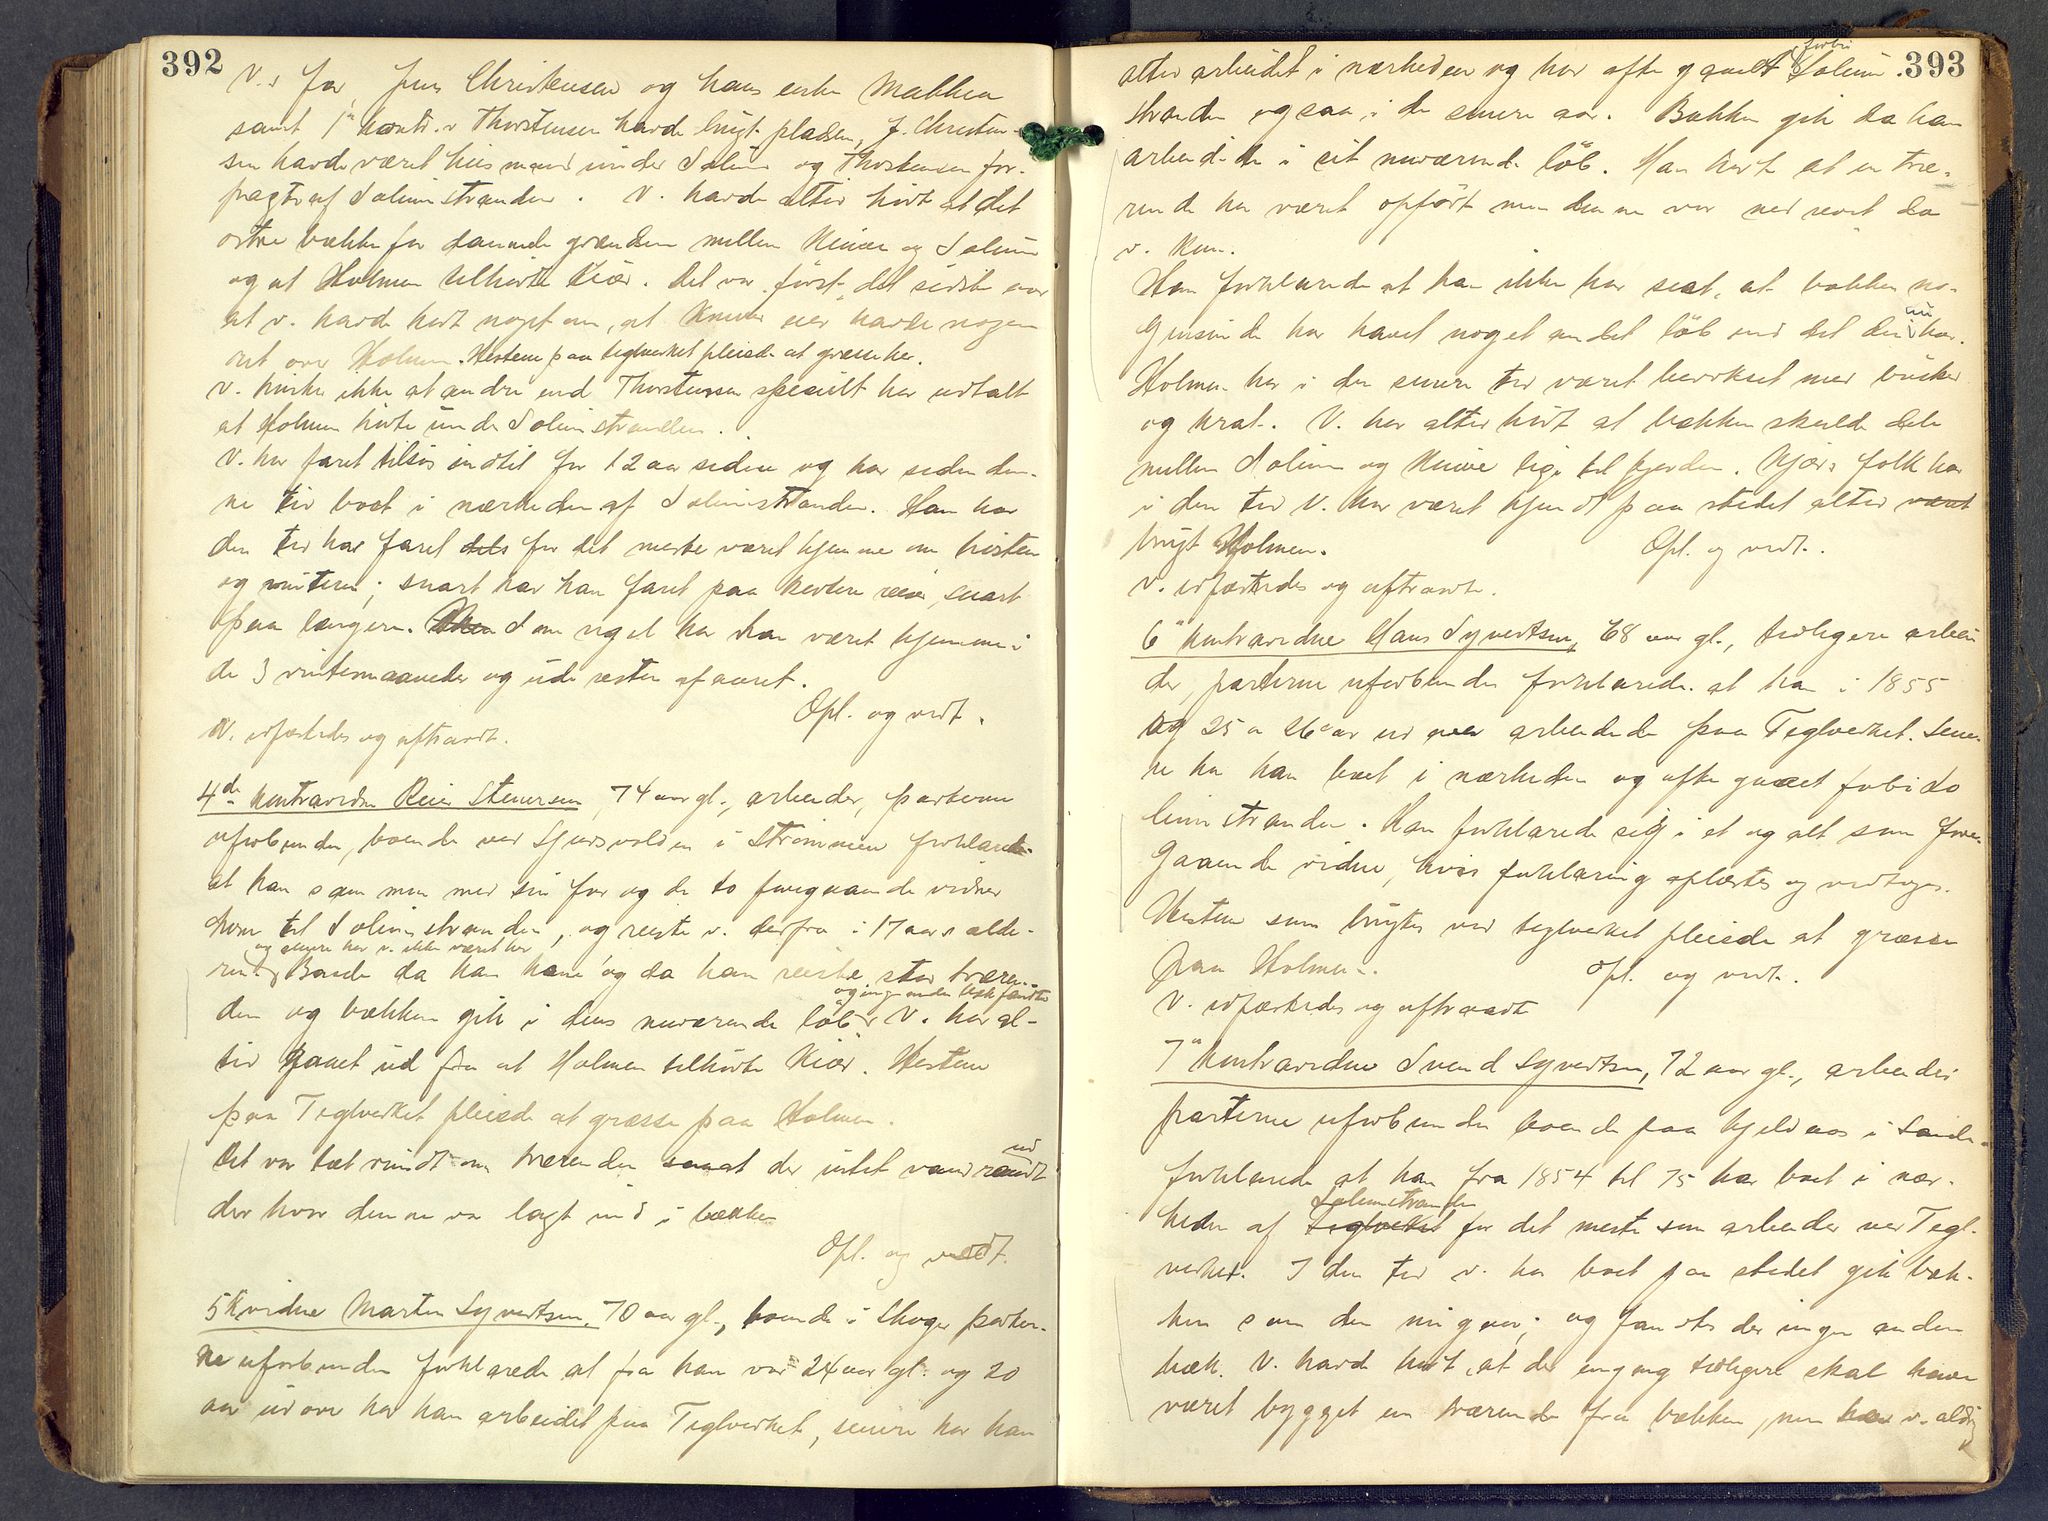 392
V.s far, Jens Christensen og hans enke Mathea
samt 1ste kontr. v Thorstensen havde brugt pladsen, J. Christen-
sen havde været husmand under Solum og Thorstensen for-
pagter af Solumstranden. V. havde altid hørt at det
østre bækkefar dannede grændsen mellem Knive og Solum
og at Holmen tilhørte Kiær. Det var først i det sidste aar
at v. havde hørt noget om, at Knive eier havde nogen
ret over Holmen. Hestene paa teglverket pleiede at græsse her.
V. husker ikke at andre end Thorstensen specielt har udtalt
at Holmen hørte under Solumstranden.
V. har faret tilsjøs indtil for 12 aar siden og har siden den-
ne tid boet i nærheden af Solumstranden. Han har
den tid har faret dels for det meste været hjemme om høsten
og vinteren; snart har han faret paa kortere reiser, snart
paa længere. Som regel har han været hjemme i
de 3 vintermaaneder og ude resten af aaret.
Opl. og vedt.
V. edfæstedes og aftraadt.
4de kontravidne Reier Stenersen, 74 aar gl., arbeider, parterne
uforbunden, boende ved Sjursvolden i Strømmen forklarede
at han sammen med sin far og de to foregaaende vidner
kom til Solumstranden, og reiste v. derfra i 17 aars alde-
og senere har v. ikke været her
ren. Baade da han kom og da han reiste, stod træren-
og ingen anden bæk fandtes
den og bækken gik i dens nuværende løb. V. har al-
tid gaaet ud fra at Holmen tilhørte Kiær. Hestene
paa Teglverket pleiede at græsse paa Holmen.
Det var tæt rundt om trærenden saa at der intet vand randt
ud
der hvor denne var lagt ind i bækken
Opl. og vedt.
5 K vidne Martin Syvertsen, 70 aar gl., boende i Skoger parter-
ne uforbunden forklarede at fra han var 24 aar gl. og 20
aar udover har han arbeidet paa Teglverket, senere har han
393
altid arbeidet i nærheden og har ofte gaaet forbi Solum-
stranden ogsaa i de senere aar. Bækken gik da han
arbeidede i sit nuværende løb. Han hørte at en træ-
rende har været opført men denne var nedrevet da
v. kom.
Han forklarede at han ikke har seet, at bækken no-
gensinde har havet noget andet løb end det den nu har.
Holmen har i den senere tid været bevokset med busker
og krat. V. har altid hørt at bækken skulde dele
mellem Solum og Knive lige til fjorden. Kjærs folk har
i den tid V. har været kjendt paa stedet altid været
brugt Holmen. Opl. og vedt.
V. edfæstedes og aftraadte.
6te kontravidne Hans Syvertsen, 68 aar gl., tidligere arbei-
der, parterne uforbunden forklarede at han i 1855
og 25 a 26 aar ud over arbeidede paa Teglverket. Sene-
re har han boet i nærheden og ofte gaaet forbi So
lumstranden. Han forklarede sig i et og alt som fore-
gaaende vidne, hvis forklaring oplæstes og vedtoges.
Hestene som brugtes ved teglverket pleiede at græsse
paa Holmen. Opl. og vedt.
V. edfæstedes og aftraadt
7de kontravidne Svend Syvertsen, 72 aar gl., arbeider
parterne uforbunden boende paa Kjeldaas i Sande
forklarede at han fra 1854 til 75 har boet i nær-
Solumstranden
heden af Teglverket for det meste som arbeider ved Tegl-
verket. I den tid v. har boet paa stedet gik bæk-
ken som den nu gaar; og fandtes der ingen anden
bæk. V. havde hørt, at der engang tidligere skal have
været bygget en trærende fra bækken, men har v. aldrig